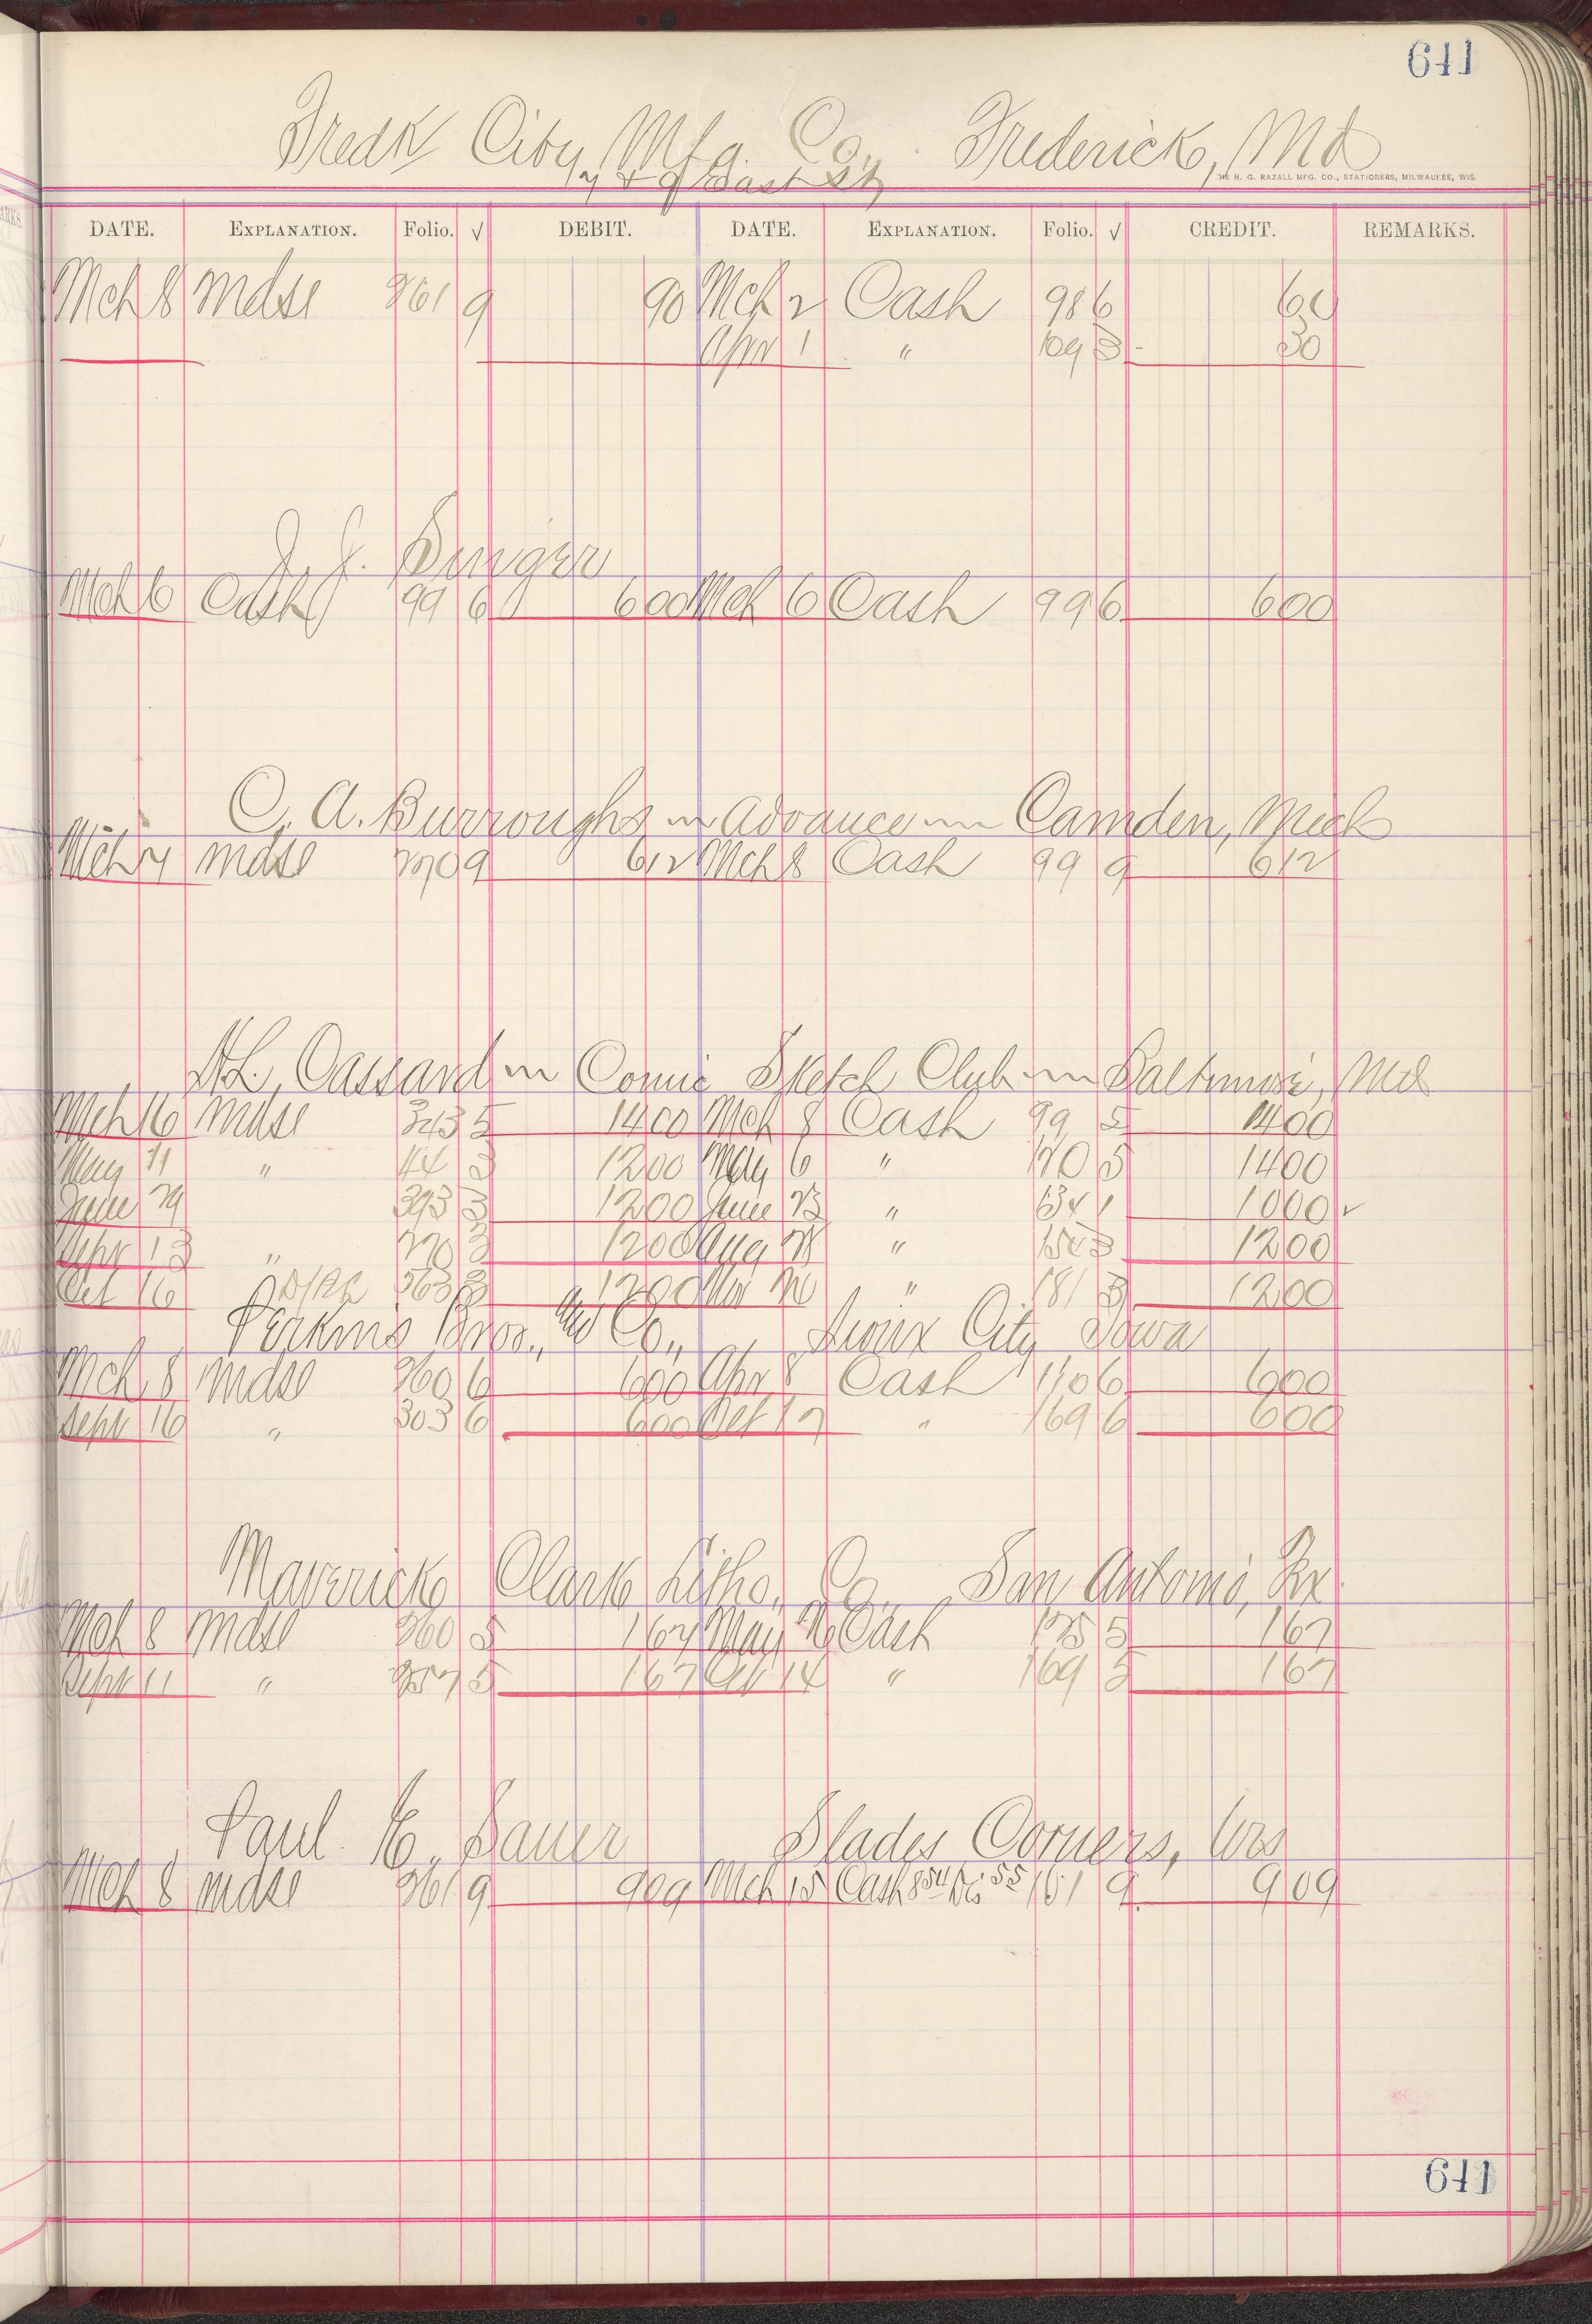 641
Fredk City Mfg. Co. Frederick, Md
7 & 9 East St
THE H. G. RAZALL MFG. CO., STATIONERS, MILWAUKEE, WIS.
DATE. EXPLANATION. Folio. √ DEBIT. DATE. EXPLANATION. Folio. √ CREDIT. REMARKS.
Mch 8 mdse 261 9 90 Mch 2 Cash 98 6 60
Apr 1 " 109 3 30
J. J. Binger
Mch 6 Cash 99 6 600 Mch 6 Cash 99 6 600
C. A. Burroughs in Advance Camden, Mich
Mch 7 mdse 270 9 612 Mch 8 Cash 99 9 612
H.L. Cassard Comic Sketch Club Baltimore, Md
Mch 16 mdse 343 5 1400 Mch 8 Cash 99 5 1400
May 11 " 44 3 1200 May 6 " 120 5 1400
June 29 393 3 1200 June 23 " 134 1 1000 ✓
Sepr 13 " 270 3 1200 Aug " 3 1200
Oct 16 363 3 1200 " 181 3 1200
Perkins Bros., Co., Sioux City Iowa
Mch 8 mdse 260 6 600 Apr 8 Cash 110 6 600
Sepr 16 " 303 6 600 Oct 17 " 169 6 600
Maverick Clark Litho. Co. San Antonio, Tex
Mch 8 mdse 260 5 167 May 26 Cash 125 5 167
Sepr 11 " 257 5 167 Oct 14 " 169 5 167
Paul E. Bauer Slades Corners, Wis
Mch 8 mdse 261 9 909 Mch 15 Cash 854 Dis 55 101 9 909
641